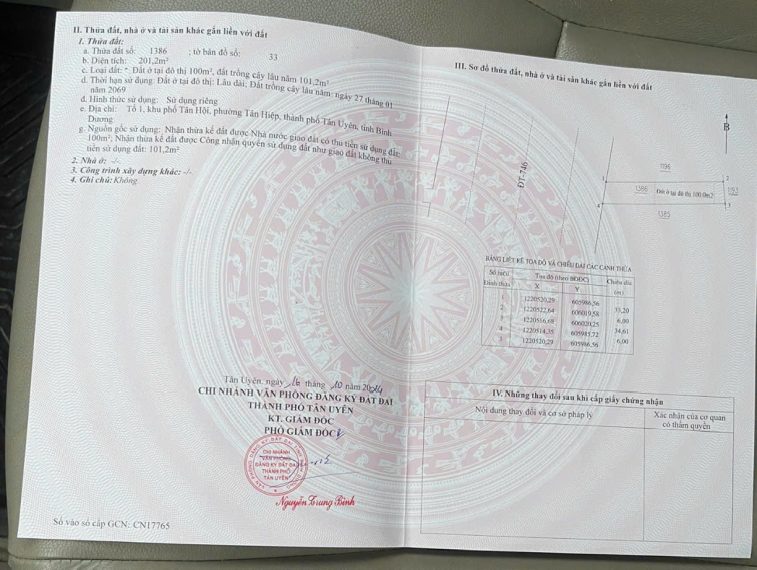 II. Thửa đất, nhà ở và tài sản khác gắn liền với đất
1. Thửa đất:
a. Thửa đất số: 1386 ; tờ bản đồ số: 33
b. Diện tích: 201,2m²
c. Loại đất: Đất ở tại đô thị 100m², đất trồng cây lâu năm 101,2m²
d. Thời hạn sử dụng: Đất ở tại đô thị: Lâu dài; Đất trồng cây lâu năm: ngày 27 tháng 01
năm 2069
đ. Hình thức sử dụng: Sử dụng riêng
e. Địa chỉ: Tổ 1, khu phố Tân Hội, phường Tân Hiệp, thành phố Tân Uyên, tỉnh Bình
Dương
g. Nguồn gốc sử dụng: Nhận thừa kế đất được Nhà nước giao đất có thu tiền sử dụng đất:
100m²; Nhận thừa kế đất được Công nhận quyền sử dụng đất như giao đất không thu
tiền sử dụng đất: 101,2m²
2. Nhà ở: -/-
3. Công trình xây dựng khác: -/-
4. Ghi chú: Không.
Tân Uyên, ngày 16 tháng 10 năm 2024
CHI NHÁNH VĂN PHÒNG ĐĂNG KÝ ĐẤT ĐAI
THÀNH PHỐ TÂN UYÊN
KT. GIÁM ĐỐC
PHÓ GIÁM ĐỐC
CHI NHÁNH
VĂN PHÒNG
ĐĂNG KÝ ĐẤT ĐAI
THÀNH PHỐ
TÂN UYÊN
Nguyễn Trung Bình
Số vào sổ cấp GCN: CN17765
III. Sơ đồ thửa đất, nhà ở và tài sản khác gắn liền với đất
B
ĐT-746
1196
1 2
1386 Đất ở tại đô thị 100.0m2 1193
4 3
1385
BẢNG LIỆT KÊ TỌA ĐỘ VÀ CHIỀU DÀI CÁC CẠNH THỬA
Số hiệu Tọa độ (theo BĐĐC) Chiều dài
Đỉnh thửa X Y (m)
1 1220520,29 605986,56
33,20
2 1220522,64 606019,58
6,00
3 1220516,68 606020,25
34,61
4 1220514,35 605985,72
6,00
5 1220520,29 605986,56
IV. Những thay đổi sau khi cấp giấy chứng nhận
Nội dung thay đổi và cơ sở pháp lý
Xác nhận của cơ quan
có thẩm quyền